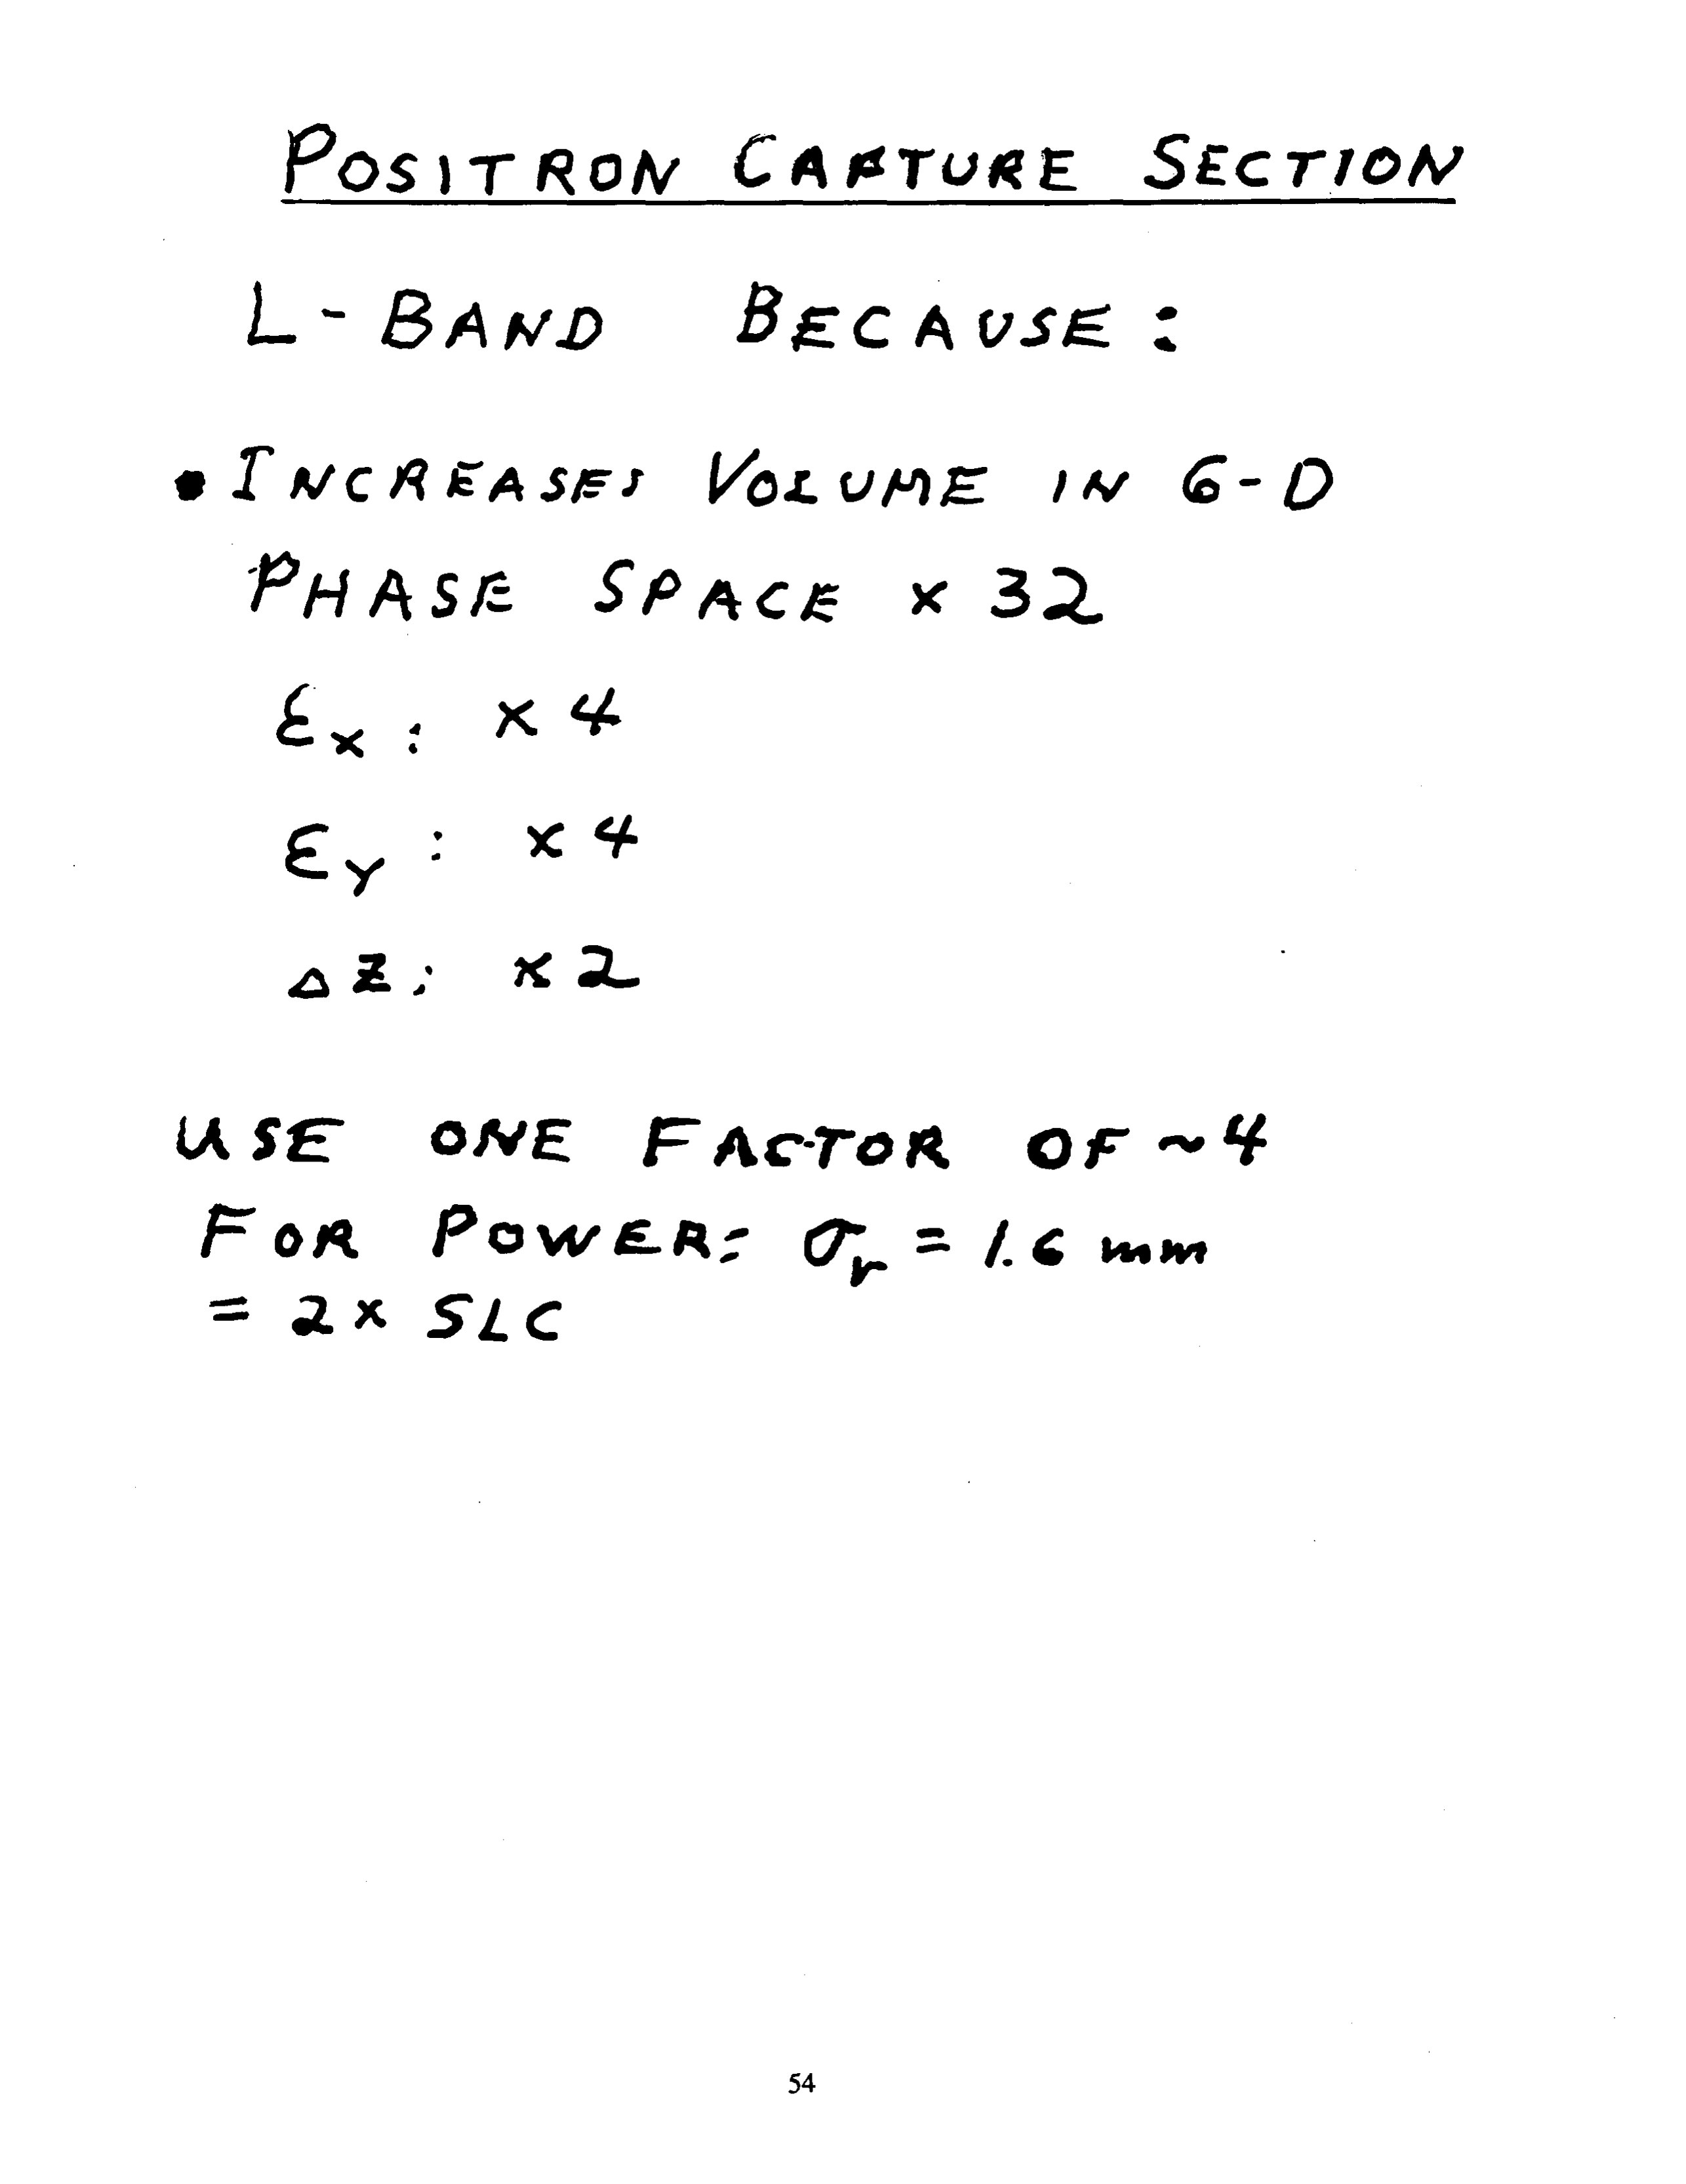 POSITRON CAPTURE SECTION
L-BAND BECAUSE:
• INCREASES VOLUME IN 6-D
PHASE SPACE x 32
εx: x 4
εy: x 4
Δz: x 2
USE ONE FACTOR OF ~4
FOR POWER: σr = 1.6 mm
= 2x SLC
54